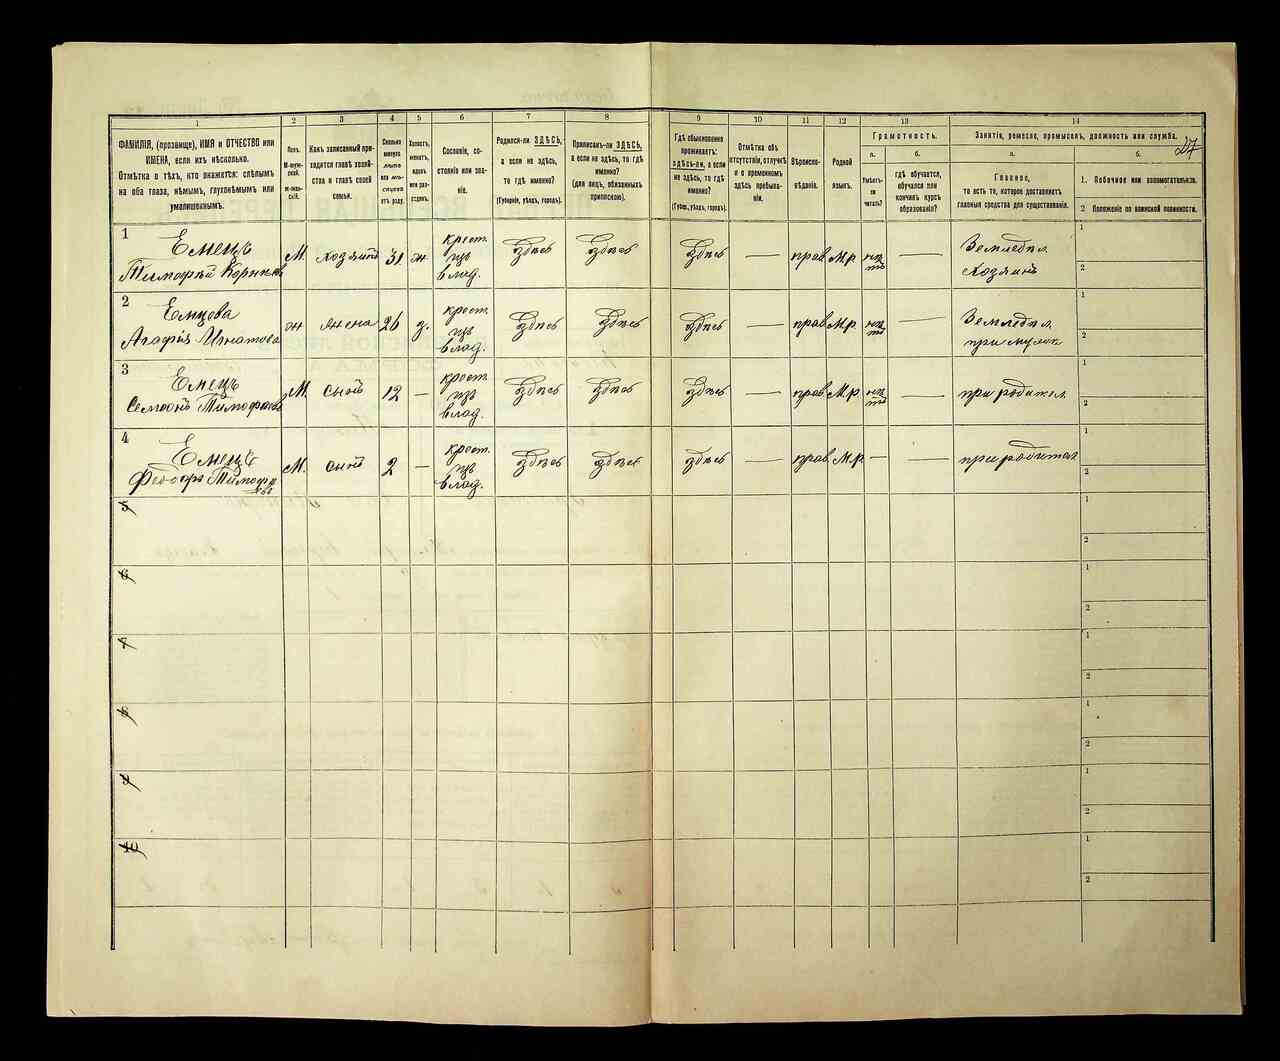 27
1
2
3
4
5
6
7
8
9
10
11
12
13
14
ФАМИЛІЯ, (прозвище), ИМЯ и ОТЧЕСТВО или
ИМЕНА, если ихъ нѣсколько.
Отмѣтка о тѣхъ, кто окажется: слѣпымъ
на оба глаза, нѣмымъ, глухонѣмымъ или
умалишеннымъ.
Полъ.
М-муж-
ской.
ж-жен-
скій.
Какъ записанный при-
ходится главѣ хозяй-
ства и главѣ своей
семьи.
Сколько
минуло
лѣтъ
или мѣ-
сяцевъ
отъ роду.
Холостъ,
женатъ,
вдовъ
или раз-
веденъ.
Сословіе, со-
стояніе или зва-
ніе.
Родился-ли ЗДѢСЬ,
а если не здѣсь,
то гдѣ именно?
(Губернія, уѣздъ, городъ).
Приписанъ-ли ЗДѢСЬ,
а если не здѣсь, то гдѣ
именно?
(для лицъ, обязанныхъ
припискою).
Гдѣ обыкновенно
проживаетъ:
здѣсь-ли, а если
не здѣсь, то гдѣ
именно?
(Губер., уѣздъ, городъ).
Отмѣтка объ
отсутствіи, отлучкѣ
и о временномъ
здѣсь пребыва-
ніи.
Вѣроиспо-
вѣданіе.
Родной
языкъ.
Грамотность.
а.
Умѣетъ-
ли
читать?
б.
гдѣ обучается,
обучался или
кончилъ курсъ
образованія?
Занятіе, ремесло, промыселъ, должность или служба.
а.
Главное,
то есть то, которое доставляетъ
главныя средства для существованія.
б.
1. Побочное или вспомогательное.
2 Положеніе по воинской повинности.
1
Емецъ
Тимофѣй
М. хозяинъ 31 ж. крест. изъ влад. здѣсь здѣсь здѣсь — прав. М.р нѣтъ —
Земледѣл.
Хозяинъ
1
2
2
Емцова
Агафія Игнатова
ж жена 26 з. крест. изъ влад. здѣсь здѣсь здѣсь — прав. М.р нѣтъ —
Земледѣл.
при мужѣ
1
2
3
Емецъ
Семеонъ Тимофеевъ
М. сынъ 12 — крест. изъ влад. здѣсь здѣсь здѣсь — прав. М.р нѣтъ —
при родител.
1
2
4
Емецъ
Федоръ Тимофеевъ
М. сынъ 2 — крест. изъ влад. здѣсь здѣсь здѣсь — прав. М.р — —
при родител
1
2
5
1
2
6
1
2
7
1
2
8
1
2
9
1
2
10
1
2